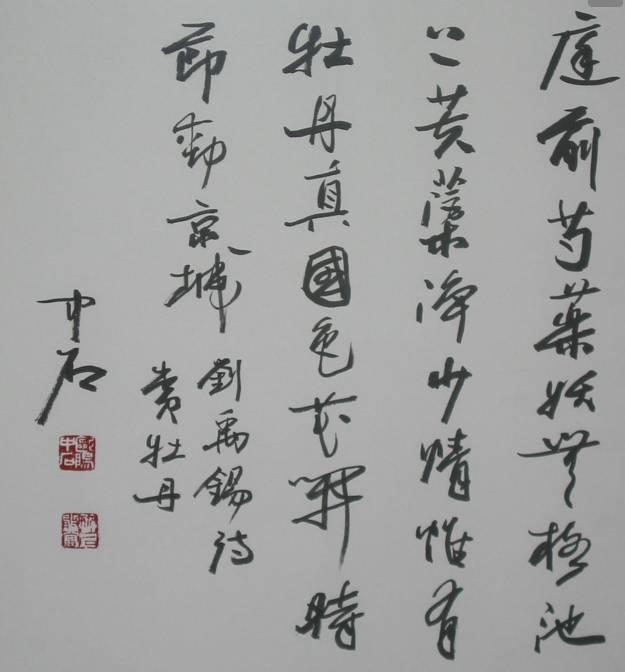 庭前芍藥妖無格池
上芙蕖淨少情惟有
牡丹真國色花開時
節動京城
劉禹錫詩
賞牡丹
中石
歐陽中石